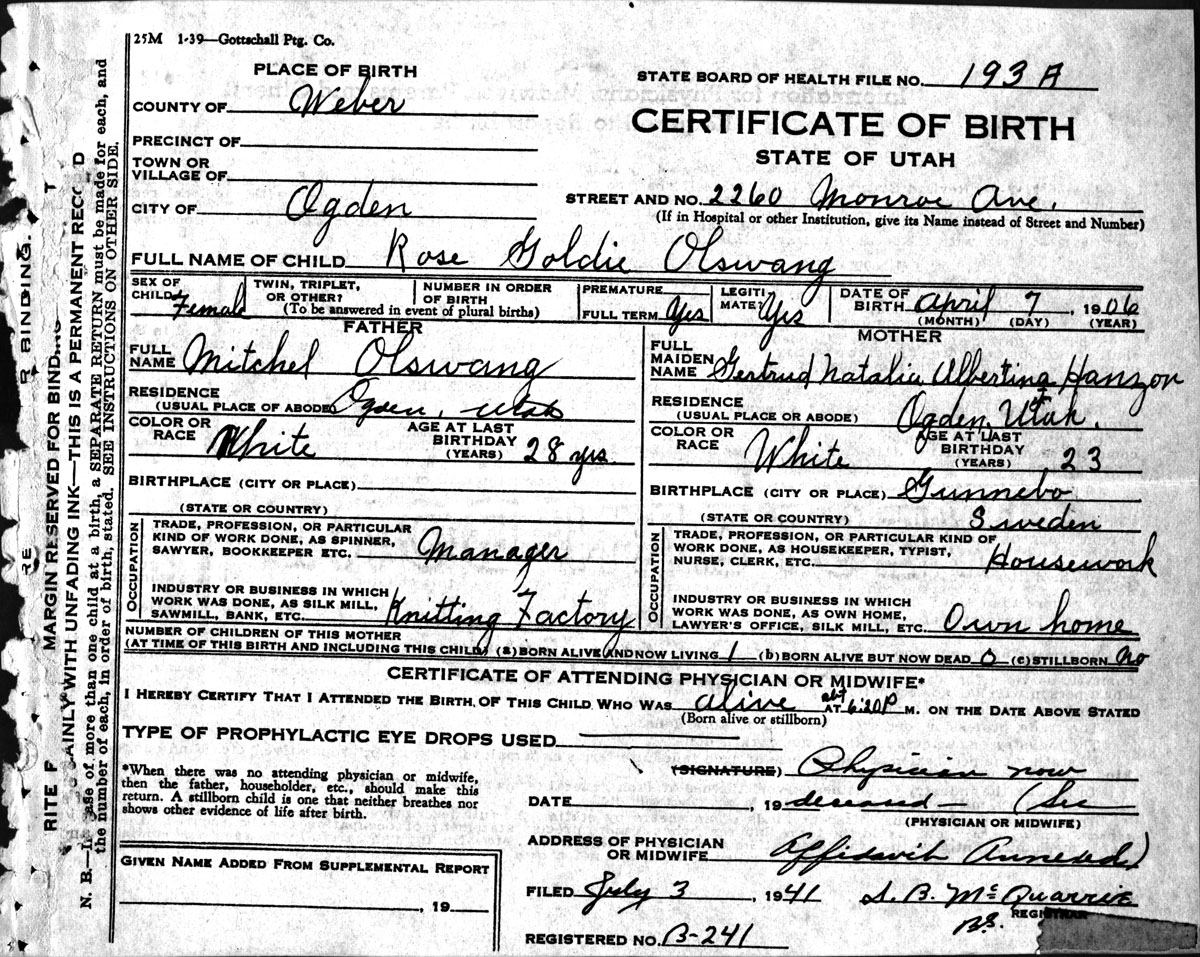 25M 1-39—Gottschall Ptg. Co.
PLACE OF BIRTH
STATE BOARD OF HEALTH FILE NO. 193 A
COUNTY OF Weber
CERTIFICATE OF BIRTH
PRECINCT OF
STATE OF UTAH
TOWN OR
VILLAGE OF
CITY OF Ogden
STREET AND NO. 2260 Monroe Ave.
(If in Hospital or other Institution, give its Name instead of Street and Number)
FULL NAME OF CHILD Rose Goldie Olswang
SEX OF
CHILD Female
TWIN, TRIPLET,
OR OTHER?
NUMBER IN ORDER
OF BIRTH
(To be answered in event of plural births)
PREMATURE
FULL TERM Yes
LEGITI
MATE? Yes
DATE OF
BIRTH April 7, 1906
(MONTH) (DAY) (YEAR)
FATHER
FULL
NAME Mitchel Olswang
RESIDENCE
(USUAL PLACE OF ABODE) Ogden, Utah
COLOR OR
RACE White
AGE AT LAST
BIRTHDAY
(YEARS) 28 yrs.
BIRTHPLACE (CITY OR PLACE)
(STATE OR COUNTRY)
OCCUPATION
TRADE, PROFESSION, OR PARTICULAR
KIND OF WORK DONE, AS SPINNER,
SAWYER, BOOKKEEPER ETC. Manager
INDUSTRY OR BUSINESS IN WHICH
WORK WAS DONE, AS SILK MILL,
SAWMILL, BANK, ETC. Knitting Factory
MOTHER
FULL
MAIDEN
NAME Gertrud Natalia Albertina Hanszon
RESIDENCE
(USUAL PLACE OR ABODE) Ogden, Utah.
COLOR OR
RACE White
AGE AT LAST
BIRTHDAY
(YEARS) 23
BIRTHPLACE (CITY OR PLACE) Gunnebo
(STATE OR COUNTRY) Sweden
OCCUPATION
TRADE, PROFESSION, OR PARTICULAR KIND OF
WORK DONE, AS HOUSEKEEPER, TYPIST,
NURSE, CLERK, ETC. Housework
INDUSTRY OR BUSINESS IN WHICH
WORK WAS DONE, AS OWN HOME,
LAWYER'S OFFICE, SILK MILL, ETC. Own home
NUMBER OF CHILDREN OF THIS MOTHER
(AT TIME OF THIS BIRTH AND INCLUDING THIS CHILD) (a) BORN ALIVE AND NOW LIVING 1 (b) BORN ALIVE BUT NOW DEAD 0 (c) STILLBORN no
CERTIFICATE OF ATTENDING PHYSICIAN OR MIDWIFE*
I HEREBY CERTIFY THAT I ATTENDED THE BIRTH OF THIS CHILD WHO WAS alive abt AT 6:20 P M. ON THE DATE ABOVE STATED
(Born alive or stillborn)
TYPE OF PROPHYLACTIC EYE DROPS USED
*When there was no attending physician or midwife,
then the father, householder, etc., should make this
return. A stillborn child is one that neither breathes nor
shows other evidence of life after birth.
(SIGNATURE) Physician now
DATE , 19 deceased — (See
(PHYSICIAN OR MIDWIFE)
ADDRESS OF PHYSICIAN
OR MIDWIFE Affidavit Annexed)
GIVEN NAME ADDED FROM SUPPLEMENTAL REPORT
, 19
FILED July 3, 1941 S. B. McQuarrie
REGISTRAR
REGISTERED NO. B-241
MARGIN RESERVED FOR
BINDING.
AINLY WITH UNFADING INK—THIS IS A PERMANENT
N. B.—In case of more than one child at a birth, a SEPARATE RETURN must be made for each, and
the number of each, in order of birth, stated. SEE INSTRUCTIONS ON OTHER SIDE.